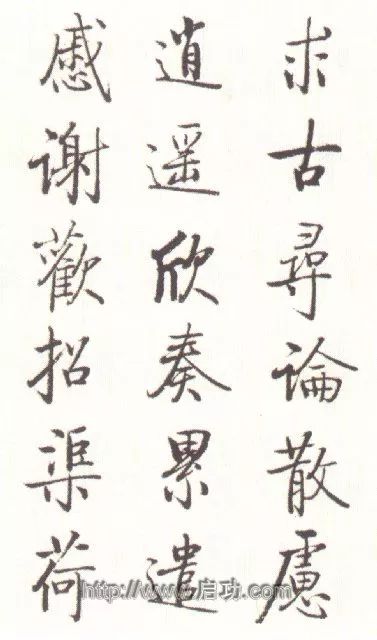 求古尋論散慮
逍遥欣奏累遣
慼谢歡招渠荷
http://www.启功.com